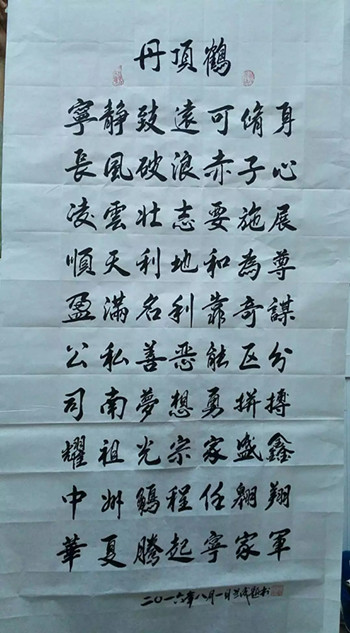 丹頂鶴
寧靜致遠可脩身
長風破浪赤子心
凌雲壯志要施展
順天利地和為尊
盈滿名利靠奇謀
公私善恶能区分
司南夢想勇拼搏
耀祖光宗家盛鑫
中州鵬程任翱翔
華夏騰起寧家軍
二〇一六年八月一日